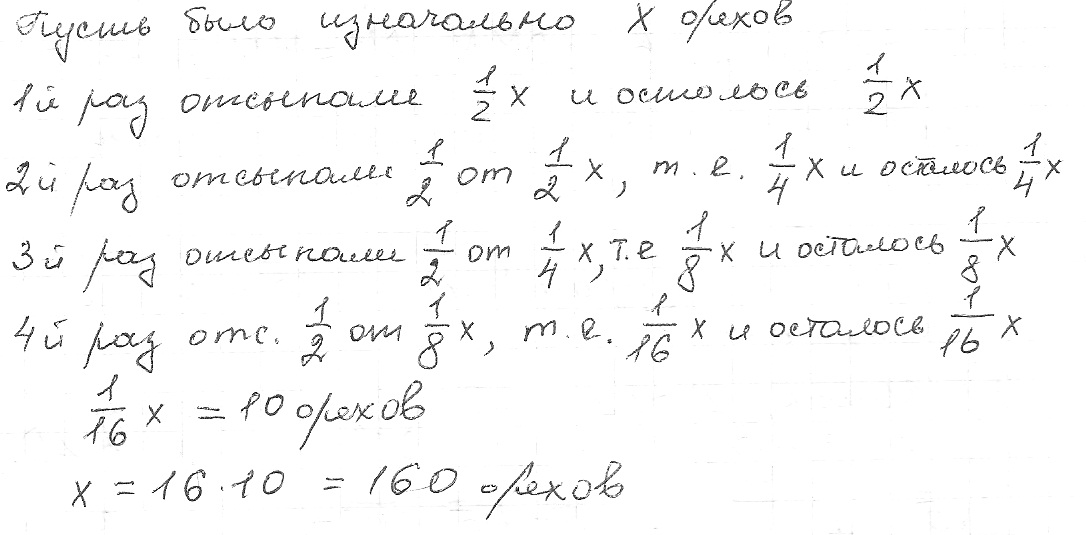 Пусть было изначально x орехов
1й раз отсыпали 1/2 x и осталось 1/2 x
2й раз отсыпали 1/2 от 1/2 x, т.е. 1/4 x и осталось 1/4 x
3й раз отсыпали 1/2 от 1/4 x, т.е 1/8 x и осталось 1/8 x
4й раз отс. 1/2 от 1/8 x, т.е. 1/16 x и осталось 1/16 x
1/16 x = 10 орехов
x = 16·10 = 160 орехов